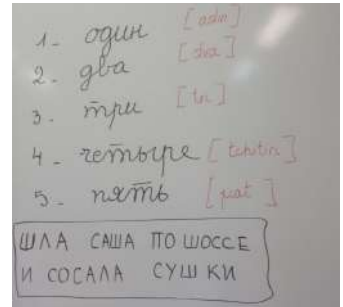 1- один [adin]
2- два [dva]
3- три [tri]
4- четыре [tchitiri]
5- пять [piat]
ШЛА САША ПО ШОССЕ
И СОСАЛА СУШКИ